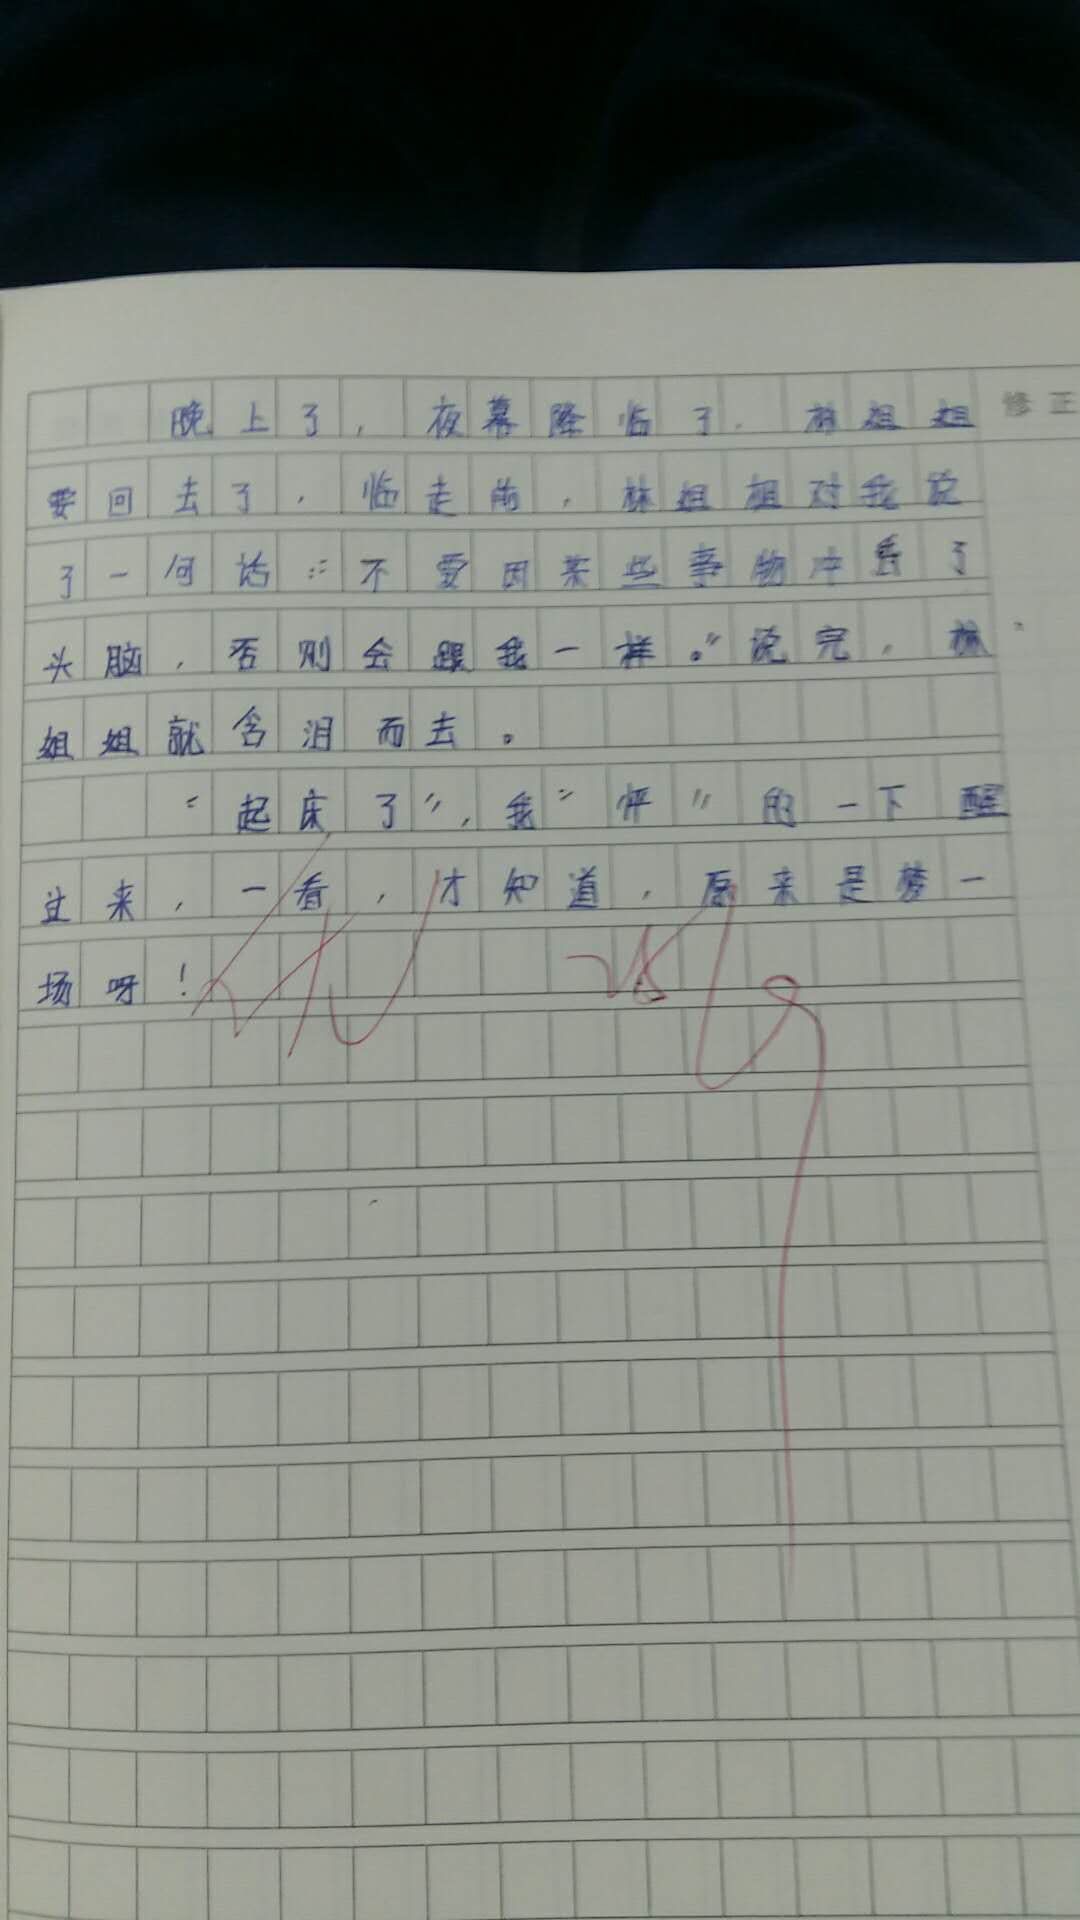 晚上了，夜幕降临了，林姐姐
修正
要回去了，临走前，林姐姐对我说
了一句话：“不要因某些事物冲昏了
头脑，否则会跟我一样。”说完，林
姐姐就含泪而去。
“起床了”，我“怦”的一下醒
过来，一看，才知道，原来是梦一
场呀！
优